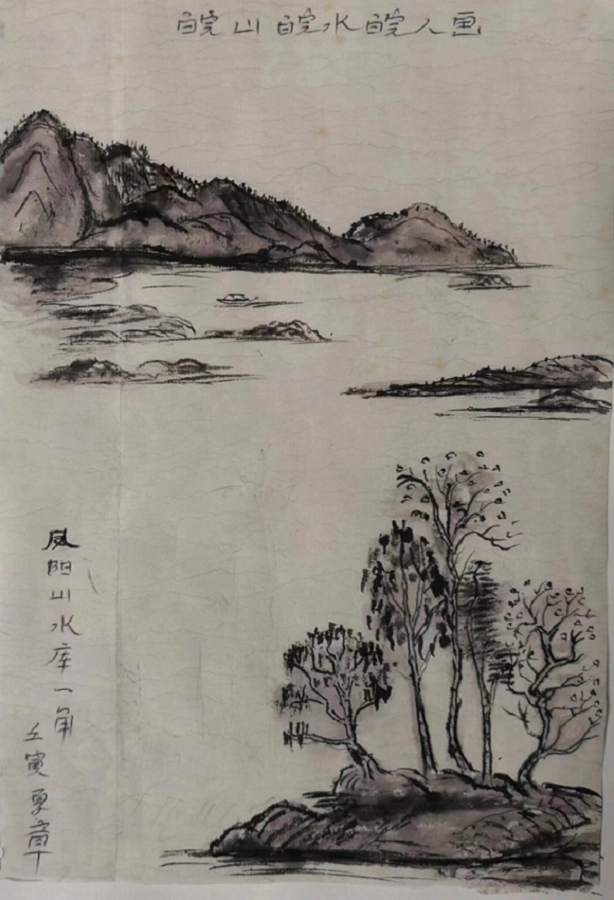 皖山皖水皖人画
凤阳山水库一角
壬寅夏章